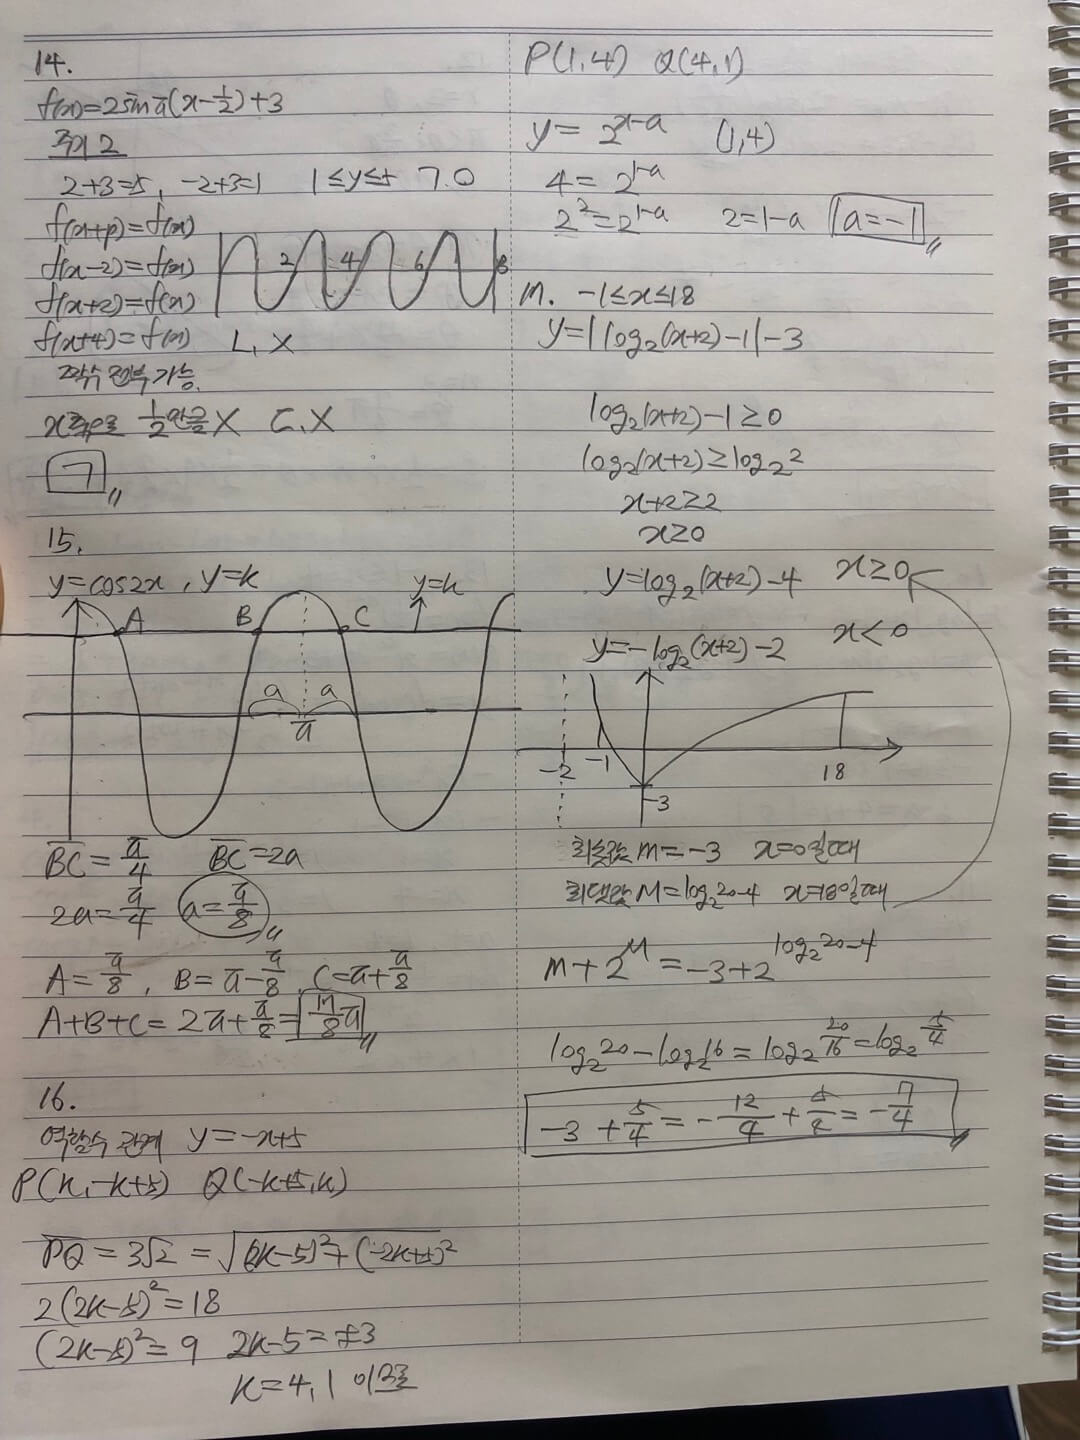 14.
f(x)=2sinπ(x-1/2)+3
주기 2
2+3=5, -2+3=1 1≤y≤5 ㄱ.O
f(x+p)=f(x)
f(x-2)=f(x)
f(x+2)=f(x)
2 4 6 8
f(x+4)=f(x) ㄴ, X
짝수 전부 가능.
x축으로 1/2만큼 X ㄷ, X
ㄱ
15.
y=cos2x, y=k
A B C y=k
a a
π
BC=π/4 BC=2a
2a=π/4 a=π/8
A=π/8, B=π-π/8, C=π+π/8
A+B+C=2π+π/8=17/8π
16.
역함수 관계 y=-x+5
P(k,-k+5) Q(-k+5,k)
PQ=3√2=√(2k-5)²+(-2k+5)²
2(2k-5)²=18
(2k-5)²=9 2k-5=±3
k=4,1 이므로
P(1,4) Q(4,1)
y=2^(x-a) (1,4)
4=2^(1-a)
2²=2^(1-a) 2=1-a a=-1
17. -1≤x≤18
y=|log₂(x+2)-1|-3
log₂(x+2)-1≥0
log₂(x+2)≥log₂2
x+2≥2
x≥0
y=log₂(x+2)-4 x≥0
y=-log₂(x+2)-2 x<0
-2 -1 18
-3
최솟값 m=-3 x=0일때
최댓값 M=log₂20-4 x=18일때
m+2^M=-3+2^(log₂20-4)
log₂20-log₂16=log₂20/16=log₂5/4
-3+5/4=-12/4+5/4=-7/4